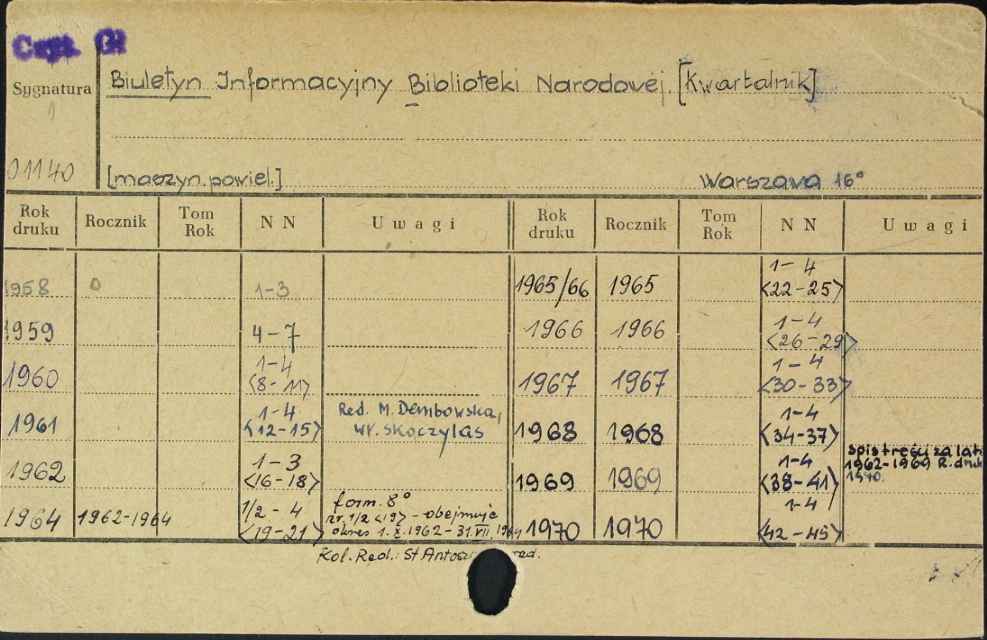 Czyt. Gł
Sygnatura
Biuletyn Informacyjny Biblioteki Narodowej. [Kwartalnik]
01140
[maszyn. powiel.] Warszawa 16°
Rok druku Rocznik Tom Rok NN Uwagi Rok druku Rocznik Tom Rok NN Uwagi
1958 1-3 1965/66 1965 1-4 <22-25>
1959 4-7 1966 1966 1-4 <26-29>
1960 1-4 <8-11> 1967 1967 1-4 <30-33>
1961 1-4 <12-15> Red. M. Dembowska, Wł. Skoczylas 1968 1968 1-4 <34-37>
1962 1-3 <16-18> 1969 1969 1-4 <38-41> spis treści za lata 1962-1969 R. druk 1970.
1964 1962-1964 1/2-4 <19-21> form. 8° nr. 1/2 <19> - obejmuje okres 1.X.1962-31.VII.1964 1970 1970 1-4 <42-45>
Kol. Red.: St. red.